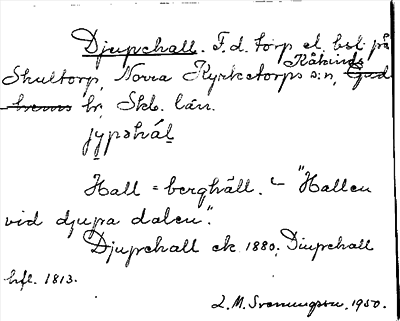 Djupehall. F. d. torp el. bsl. på
Skultorp, Norra Kyrketorps s:n, Kåkinds
hr, Skb. län.
jypəhál
Hall = berghäll. "Hallen
vid djupa dalen".
Djupehall ek 1880. Diupehall
hfl. 1813.
L. M. Svenungsson, 1950.